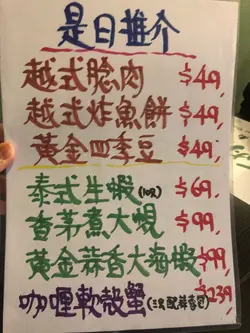 是日推介
越式腍肉 $49,
越式炸魚餅 $49,
黃金四季豆 $49,
泰式生蝦(10隻) $69,
香茅煮大蜆 $99,
黃金蒜香大海蝦 $99,
咖喱軟殼蟹(三隻配蒜香包) $239,